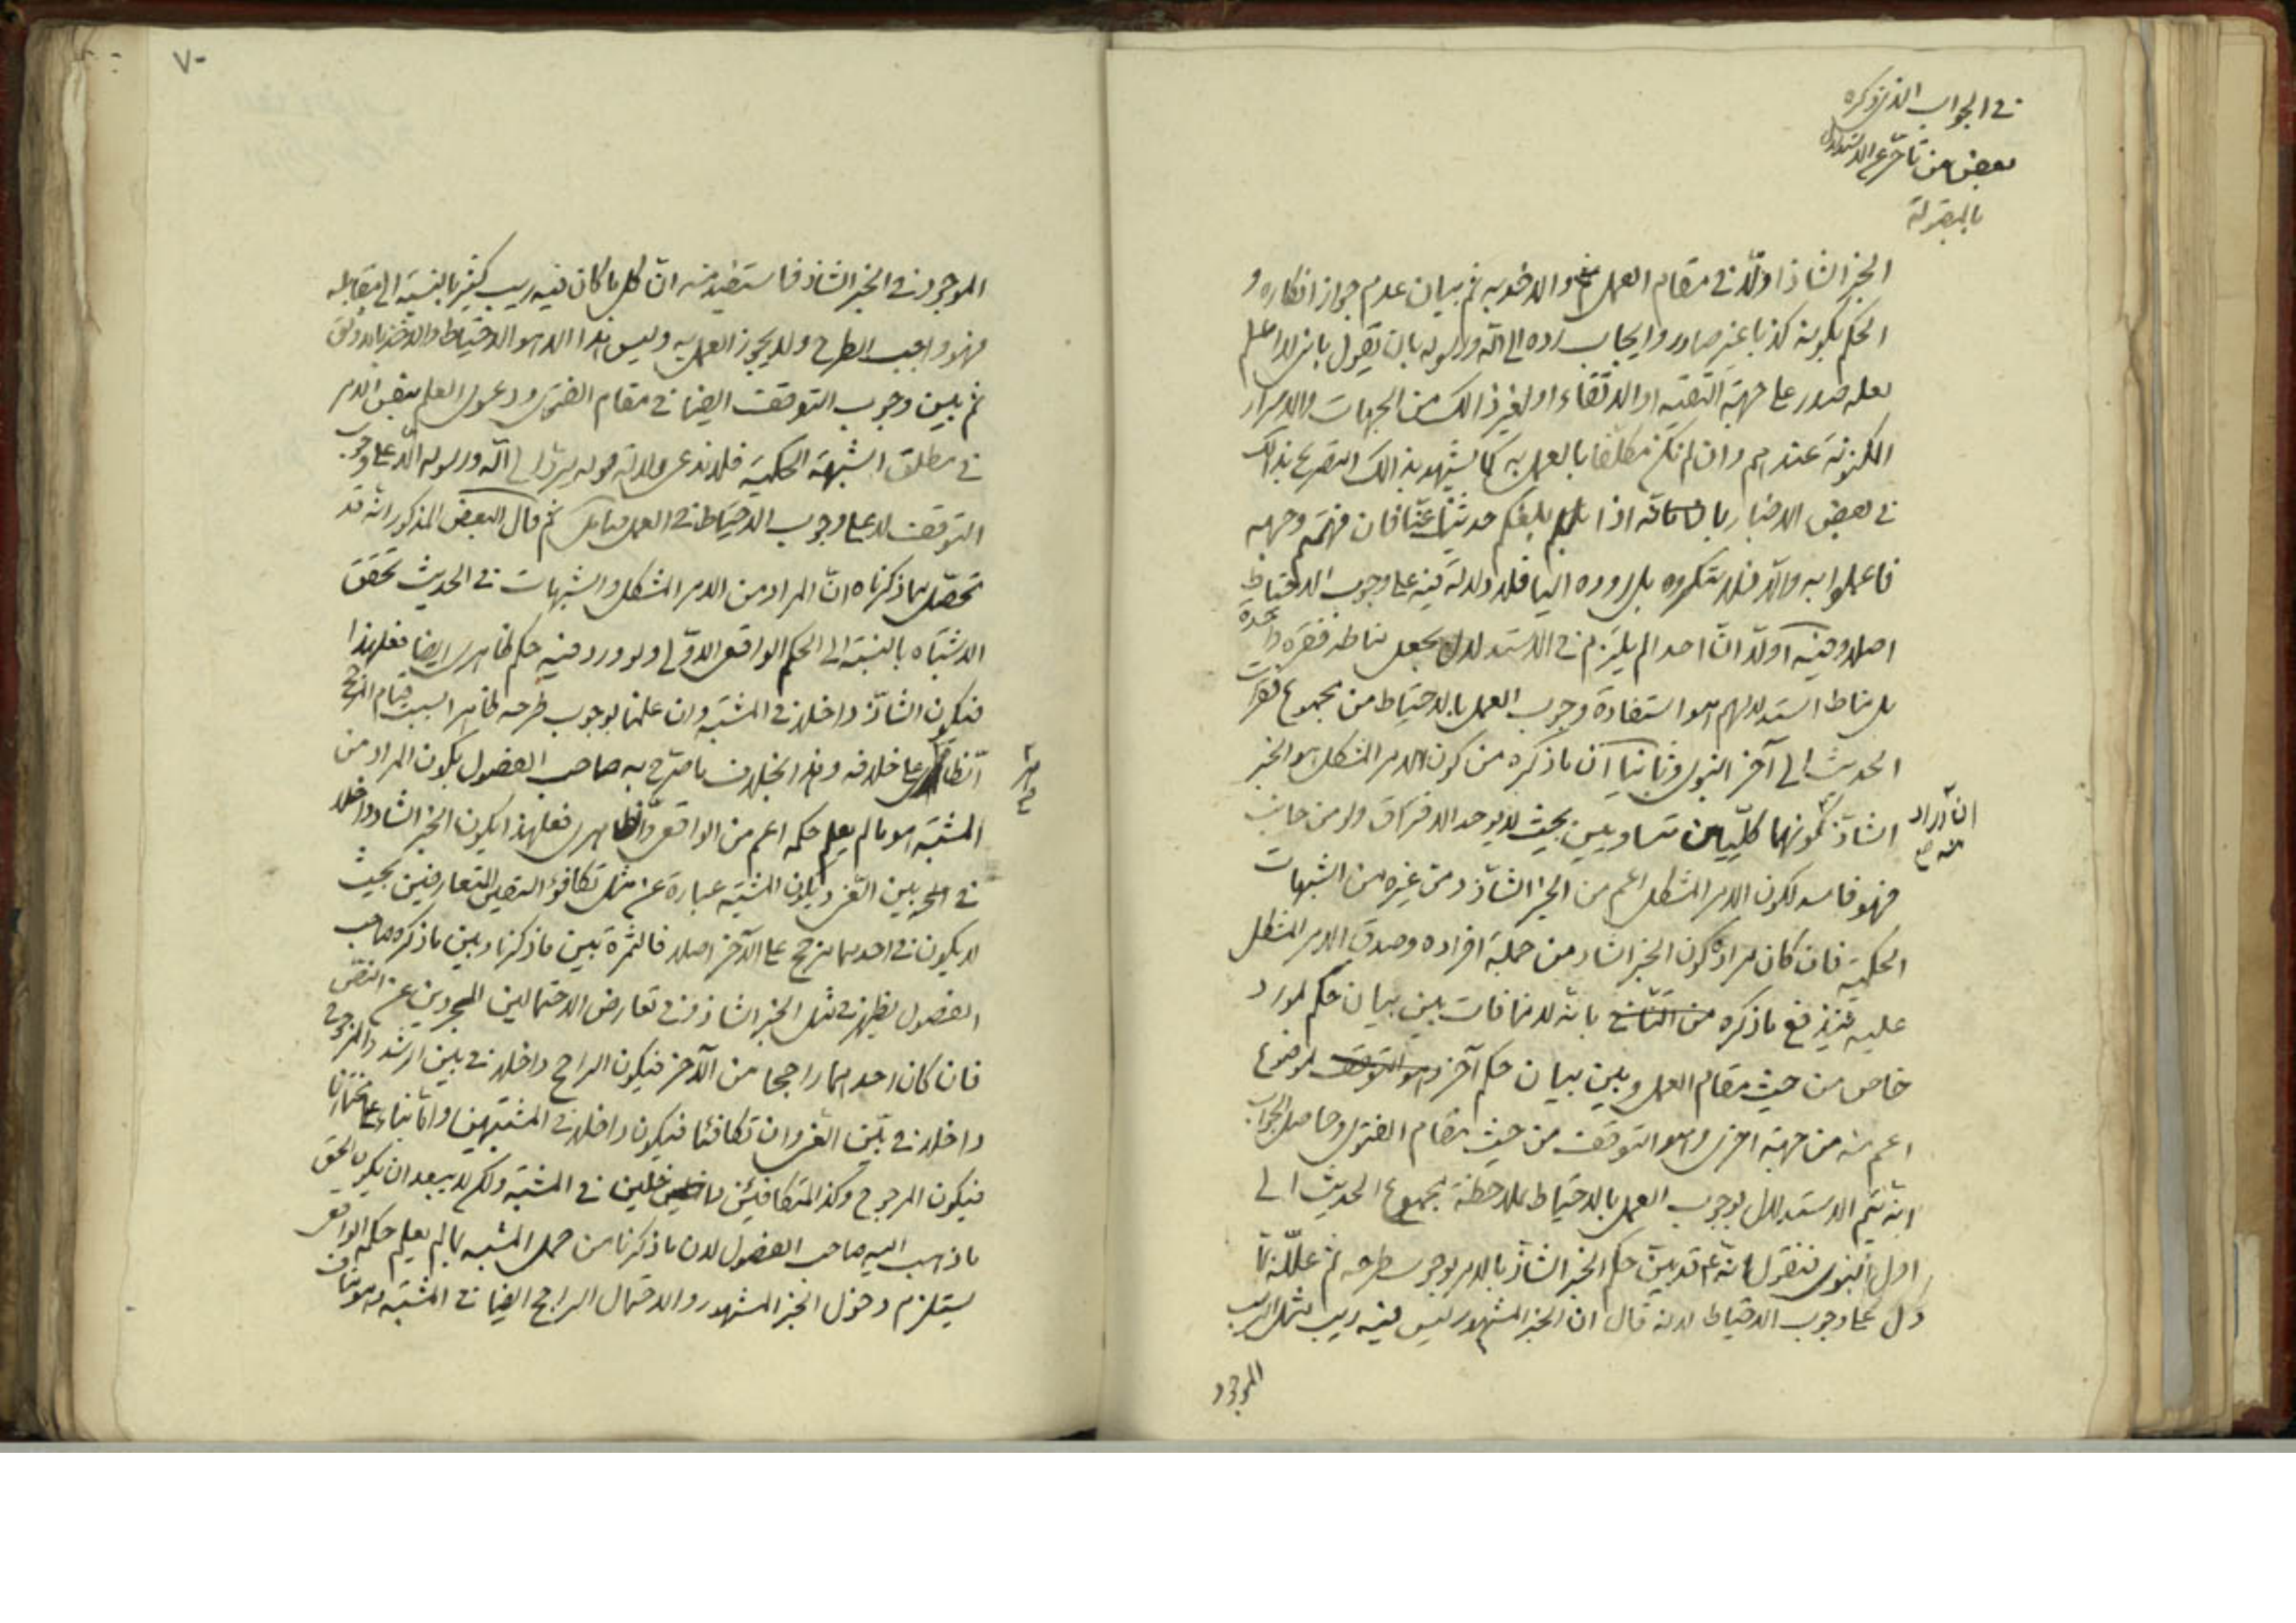 في الجواب الذي ذكره
بعض من تأخر عن الاستدلال
بالمقبولة
الخبر الشاذ اولا في مقام العمل والاخذ به ثم بيان عدم جواز انكاره و
الحكم بكونه كذبا غير صادر وايجاب رده الى الله ورسوله بان تقول باني لا اعلم
لعله صدر على جهة التقية او الاتقاء او لغير ذالك من الجهات والاسرار
المكنونة عندهم وان لم نكن مكلفا بالعمل به كما يشهد بذالك التصريح بذالك
في بعض الاخبار بانه اذا بلغكم حديثا عنا فان فهمتم وجهه
فاعملوا به والا فلا تنكروه بل ردوه الينا فلا دلالة فيه على وجوب الاحتياط
اصلا وفيه اولا ان احدا لم يلتزم في الاستدلال بجعل مناطه فقرة واحدة
بل مناط استدلالهم هو استفادة وجوب العمل بالاحتياط من مجموع فقرات
الحديث الى آخر النبوي وثانيا ان ما ذكره من كون الامر المشكل هو الخبر
ان اراد
الشاذ كونهما كليان متساويين بحيث لا يوجد الافتراق ولو من جانب
فهو فاسد لكون الامر المشكل اعم من الخبر الشاذ ومن غيره من الشبهات
الحكمية فان كان مراده كون الخبر الشاذ من جملة افراده وصدق الامر المشكل
عليه فيندفع ما ذكره من الثاني بانه لا منافات بين بيان حكم لمورد
خاص من حيث مقام العمل وبين بيان حكم آخر وهو التوقف لموضوع
اعم منه من جهة اخرى وهو التوقف من حيث مقام الفتوى وحاصل الجواب
انه يتم الاستدلال لوجوب العمل بالاحتياط بملاحظة مجموع الحديث الى
اول النبوي فنقول انه ع قد بين حكم الخبر الشاذ بالامر بوجوب طرحه ثم علله بما
دل على وجوب الاحتياط لانه قال ان الخبر المشهور ليس فيه ريب مثل الريب
الموجود
٧٠
الموجود في الخبر الشاذ فاستفيد منه ان كل ما كان فيه ريب كثير بالنسبة الى مقابله
فهو واجب الطرح ولا يجوز العمل به وليس هذا الا هو الاحتياط والاخذ بالاوثق
ثم بين وجوب التوقف ايضا في مقام الفتوى ودعوى العلم بنفس الامر
في مطلق الشبهة الحكمية فلا ندعي دلالة قوله يرد الى الله ورسوله الا على وجوب
التوقف لا على وجوب الاحتياط في العمل فتامل ثم قال البعض المذكور انه قد
تحصل مما ذكرناه ان المراد من الامر المشكل والشبهات في الحديث تحقق
الاشتباه بالنسبة الى الحكم الواقعي الاولي ولو ورد فيه حكم ظاهري ايضا فعلى هذا
فيكون الشاذ داخلا في المشتبه وان علمنا بوجوب طرحه ظاهرا بسبب قيام المرجح
الظاهري على خلافه وهذا بخلاف ما صرح به صاحب الفصول بكون المراد من
المشتبه هو ما لم يعلم حكمه اعم من الواقعي والظاهري فعلى هذا يكون الخبر الشاذ داخلا
في بين الغي ويكون المشتبه عبارة عن مثل تكافؤ النصين المتعارضين بحيث
لا يكون في احدهما ترجيح على الآخر اصلا فالثمرة بين ما ذكرنا وبين ما ذكره صاحب
الفصول يظهر في مثل الخبر الشاذ وفي تعارض الاحتمالين المجردين عن النص
فان كان احدهما راجحا من الآخر فيكون الراجح داخلا في بين الرشد والمرجوح
داخلا في بين الغي وان تكافئا فيكون داخلا في المشتبهين واما بناء على مختارنا
فيكون المرجوح وكذا المتكافئين داخلين في المشتبه ولكن لا يبعد ان يكون الحق
ما ذهب اليه صاحب الفصول لان ما ذكرنا من حمل المشتبه بما لم يعلم حكمه الواقعي
يستلزم دخول الخبر المشهور والاحتمال الراجح ايضا في المشتبه وهو مناف